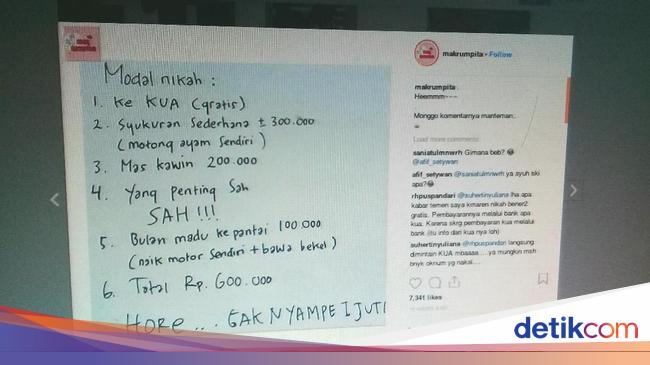 makrumpita • Follow
Modal nikah :
1. Ke KUA (gratis)
2. Syukuran Sederhana ± 300.000
(motong ayam Sendiri)
3. Mas kawin 200.000
4. Yang penting Sah
SAH !!!
5. Bulan madu ke pantai 100.000
(naik motor Sendiri + bawa bekel)
6. Total Rp. 600.000
HORE ... GAK NYAMPE 1 JUTA
makrumpita
Heemmm~~~
Monggo komentarnya manteman..
Load more comments
saniatulmnwrh Gimana beb?
@afif_setywan
afif_setywan @saniatulmnwrh ya ayuh ski
apa?
rhpuspandari @suhertinyuliana lha apa
kabar temen saya kmaren nikah bener2
gratis. Pembayarannya melalui bank apa
kua. Karena skrg pembayaran kua melalui
bank (itu info dari kua nya loh)
suhertinyuliana @rhpuspandari langsung
dimintain KUA mbaaaa....ya mungkin msh
bnyk oknum yg nakal....
7,341 likes
detikcom